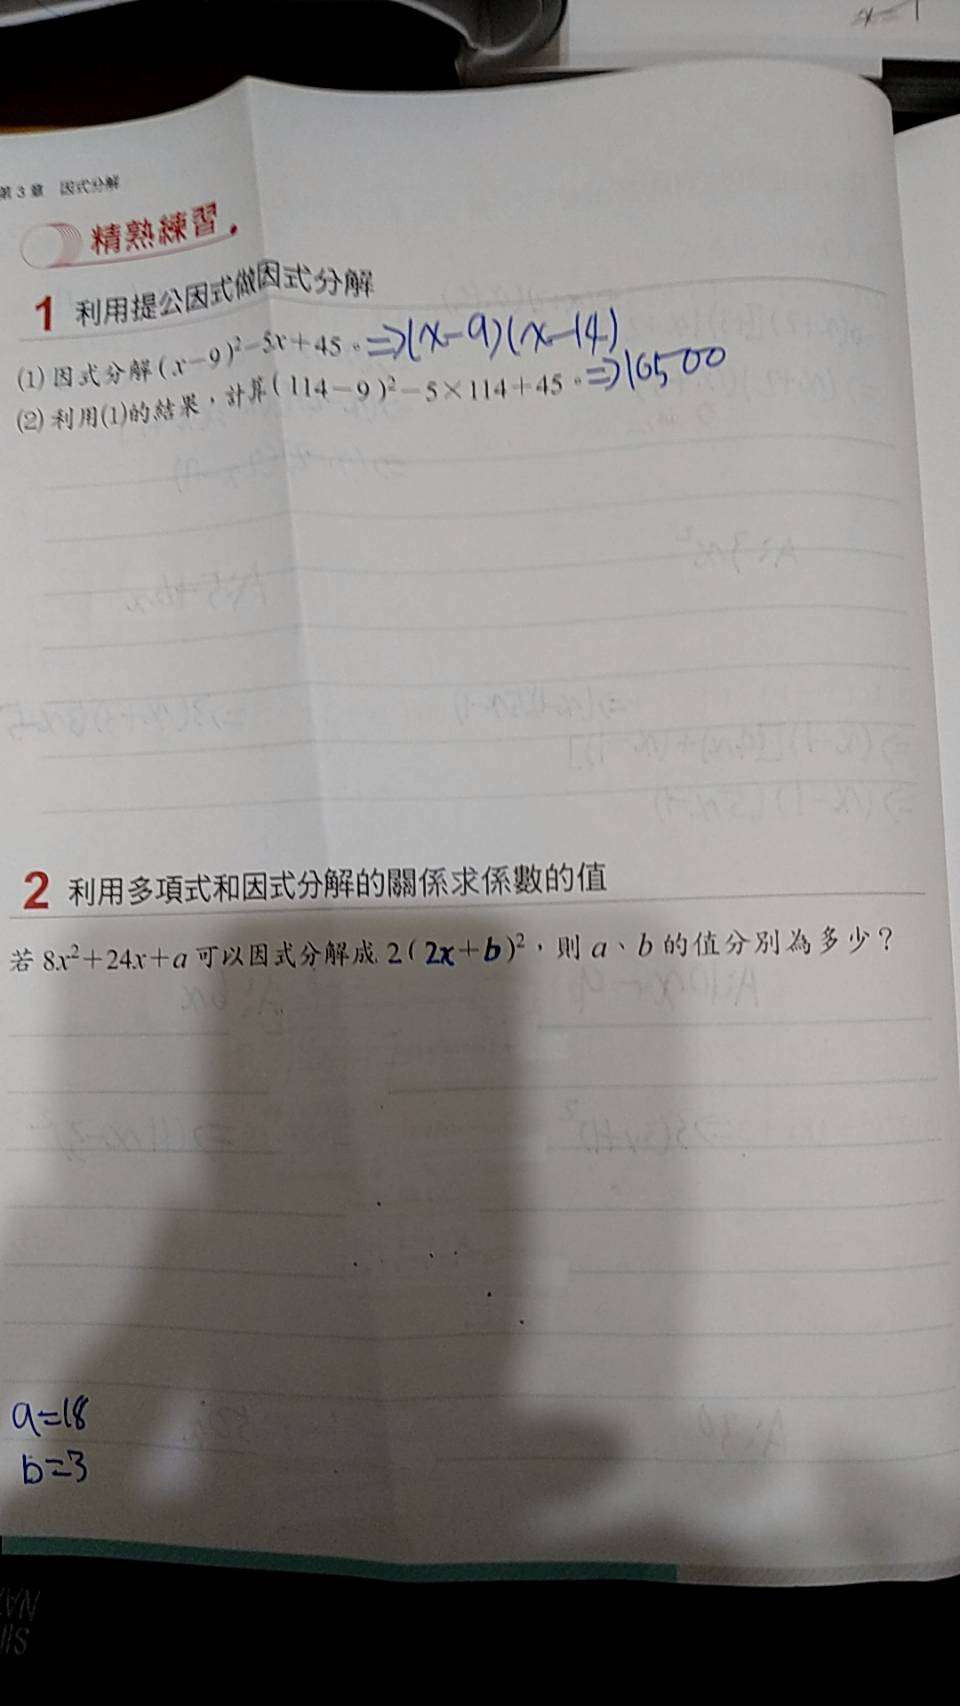 第3章 因式分解
精熟練習
1 利用提公因式做因式分解
(1) 因式分解(x-9)²-5x+45。⇒(x-9)(x-14)
(2) 利用(1)的結果，計算(114-9)²-5×114+45。⇒10500
2 利用多項式和因式分解的關係求係數的值
若 8x²+24x+a 可以因式分解成 2(2x+b)²，則 a、b 的值分別為多少？
a=18
b=3